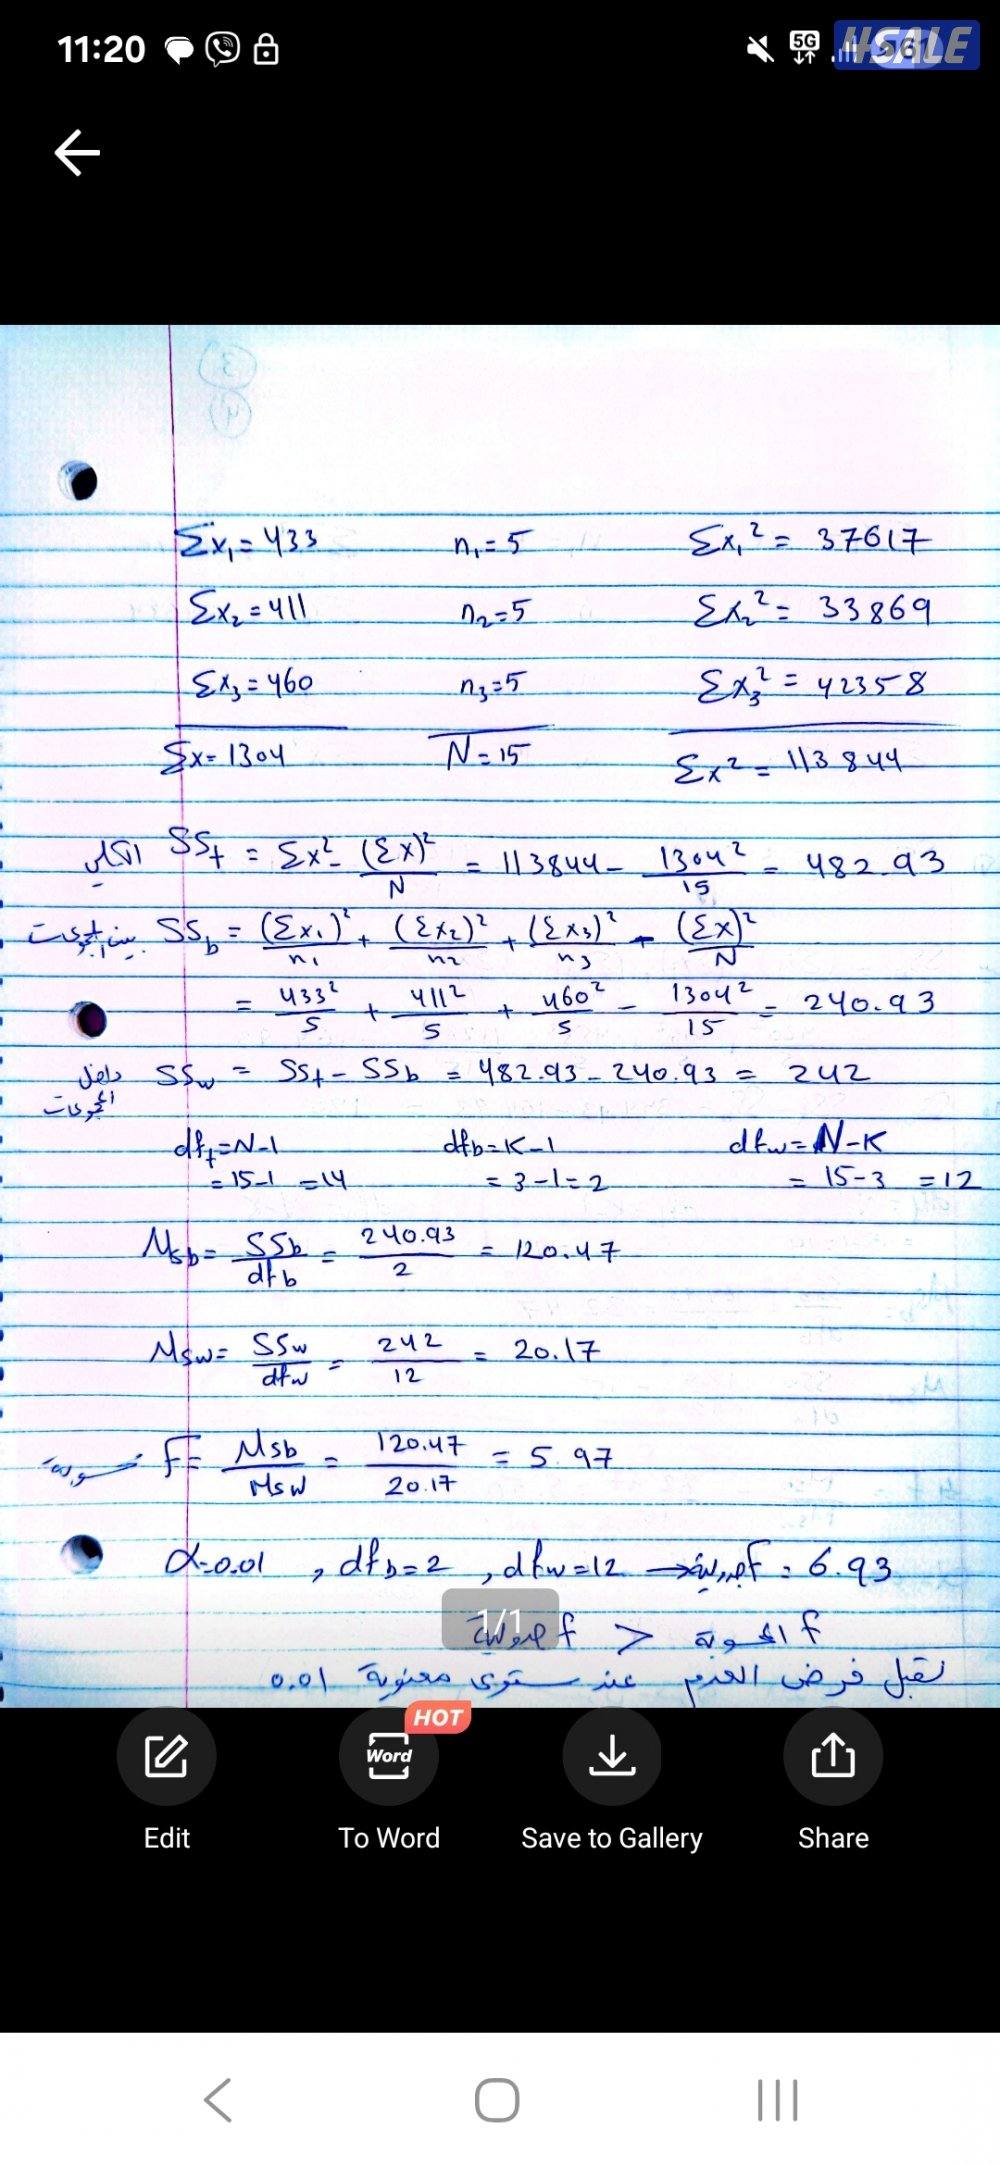 11:20
5G
HSALE
Σx₁ = 433 n₁ = 5 Σx₁² = 37617
Σx₂ = 411 n₂ = 5 Σx₂² = 33869
Σx₃ = 460 n₃ = 5 Σx₃² = 42358
Σx = 1304 N = 15 Σx² = 113844
الكلي SSt = Σx² - (Σx)²/N = 113844 - 1304²/15 = 482.93
بين المجموعات SSb = (Σx₁)²/n₁ + (Σx₂)²/n₂ + (Σx₃)²/n₃ - (Σx)²/N
= 433²/5 + 411²/5 + 460²/5 - 1304²/15 = 240.93
داخل المجموعات SSw = SSt - SSb = 482.93 - 240.93 = 242
dft = N-1 dfb = K-1 dfw = N-K
= 15-1 = 14 = 3-1 = 2 = 15-3 = 12
Msb = SSb/dfb = 240.93/2 = 120.47
Msw = SSw/dfw = 242/12 = 20.17
محسوبة F = Msb/Msw = 120.47/20.17 = 5.97
α = 0.01 , dfb = 2 , dfw = 12 → جدولية f = 6.93
f المحسوبة < f جدولية
نقبل فرض العدم عند مستوى معنوية 0.01
1/1
HOT
Word
Edit To Word Save to Gallery Share